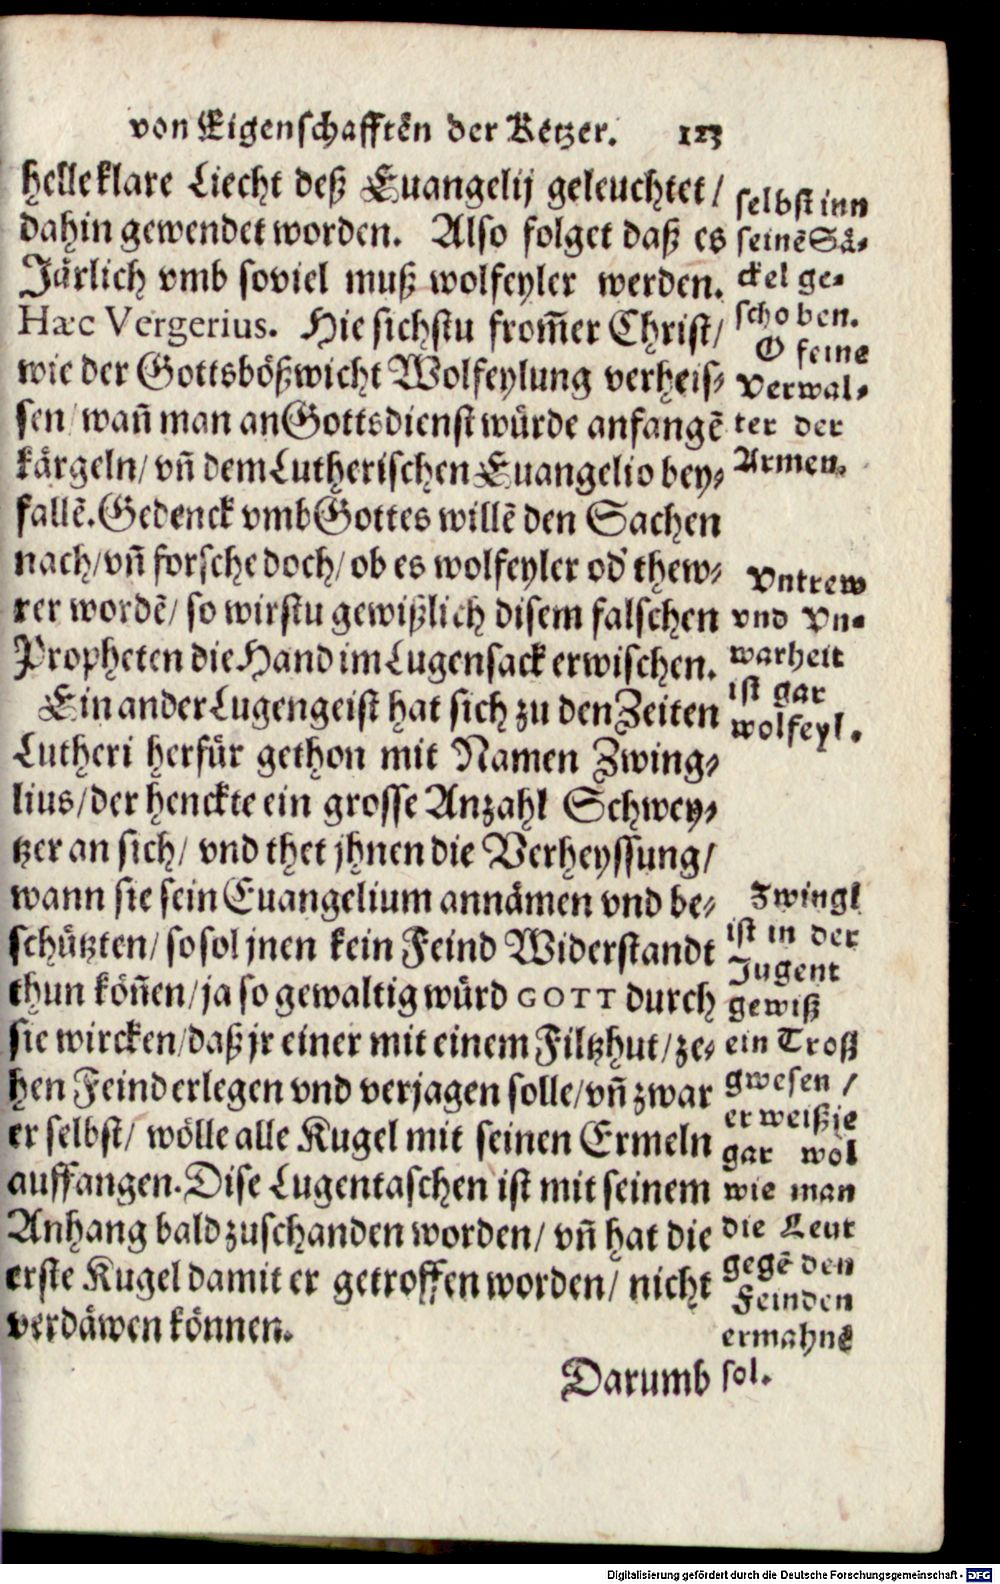 von Eigenschafften der Ketzer. 123
helle klare Liecht deß Euangelij geleuchtet/
dahin gewendet worden. Also folget daß es
Järlich vmb soviel muß wolfeyler werden.
Hæc Vergerius. Hie sichstu from̃er Christ/
wie der Gottsbößwicht Wolfeylung verheis-
sen/ wañ man an Gottsdienst würde anfangẽ
kärgeln/ vñ dem Lutherischen Euangelio bey-
fallẽ. Gedenck vmb Gottes willẽ den Sachen
nach/ vñ forsche doch/ ob es wolfeyler od' thew-
rer wordẽ/ so wirstu gewißlich disem falschen
Propheten die Hand im Lugensack erwischen.
Ein ander Lugengeist hat sich zu den Zeiten
Lutheri herfür gethon mit Namen Zwing-
lius/ der henckte ein grosse Anzahl Schwey-
tzer an sich/ vnd thet jhnen die Verheyssung/
wann sie sein Euangelium annämen vnd be-
schützten/ so sol jnen kein Feind Widerstandt
thun köñen/ ja so gewaltig würd GOTT durch
sie wircken/ daß jr einer mit einem Filtzhut/ ze-
hen Feind erlegen vnd verjagen solle/ vñ zwar
er selbst/ wölle alle Kugel mit seinen Ermeln
auffangen. Dise Lugentaschen ist mit seinem
Anhang bald zuschanden worden/ vñ hat die
erste Kugel damit er getroffen worden/ nicht
verdäwen können.
Darumb
selbst inn
seinẽ Sä-
ckel ge-
schoben.
O feine
Verwal-
ter der
Armen.
Vntrew
vnd Vn-
warheit
ist gar
wolfeyl.
Zwingl
ist in der
Jugent
gewiß
ein Troß
gwesen /
er weiß je
gar wol
wie man
die Leut
gegẽ den
Feinden
ermahnẽ
sol.
Digitalisierung gefördert durch die Deutsche Forschungsgemeinschaft - DFG